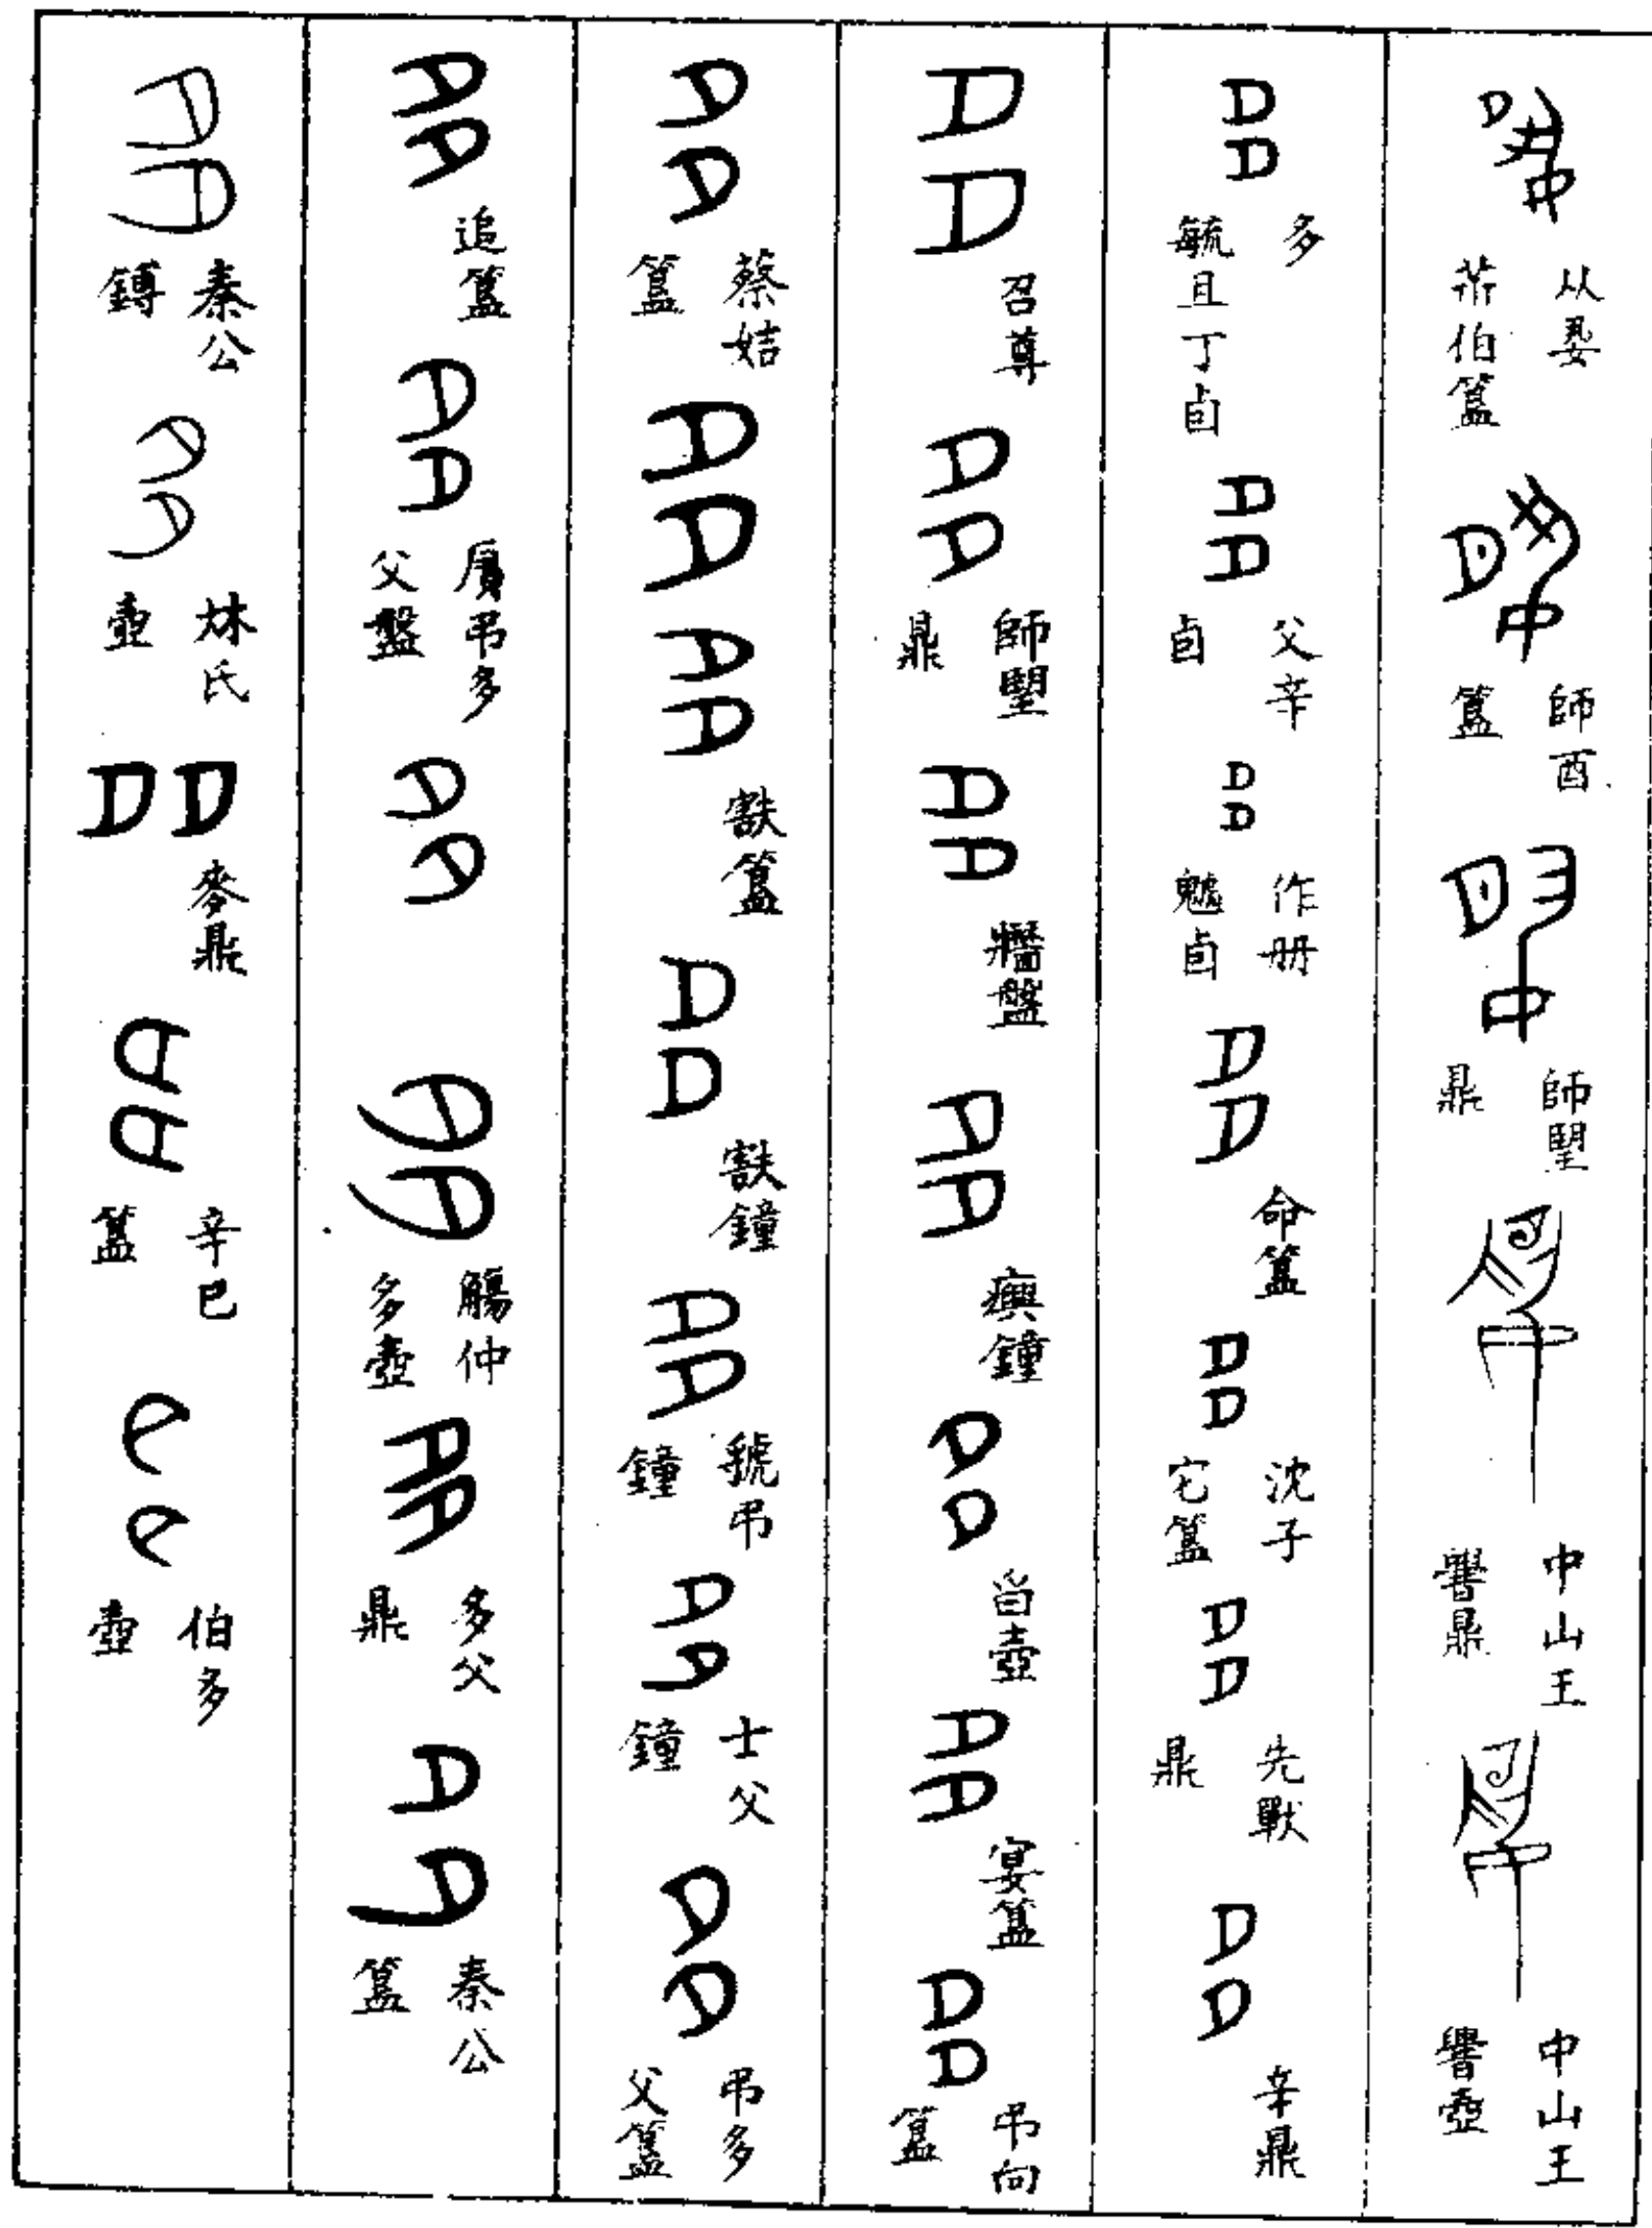 从妟 芾伯簋
師酉簋
師朢鼎
中山王鼎
中山王壺
多 毓且丁卣
父辛卣
作册魖卣
命簋
沈子它簋
先獸鼎
辛鼎
召尊
師朢鼎
牆盤
𤼈鐘
曶壺
宴簋
弔向簋
蔡姞簋
㝬簋
㝬鐘
虢弔鐘
士父鐘
弔多父簋
追簋
弔多父盤
觴仲多壺
多父鼎
秦公簋
秦公鎛
氏壺
麥鼎
辛巳簋
伯多壺